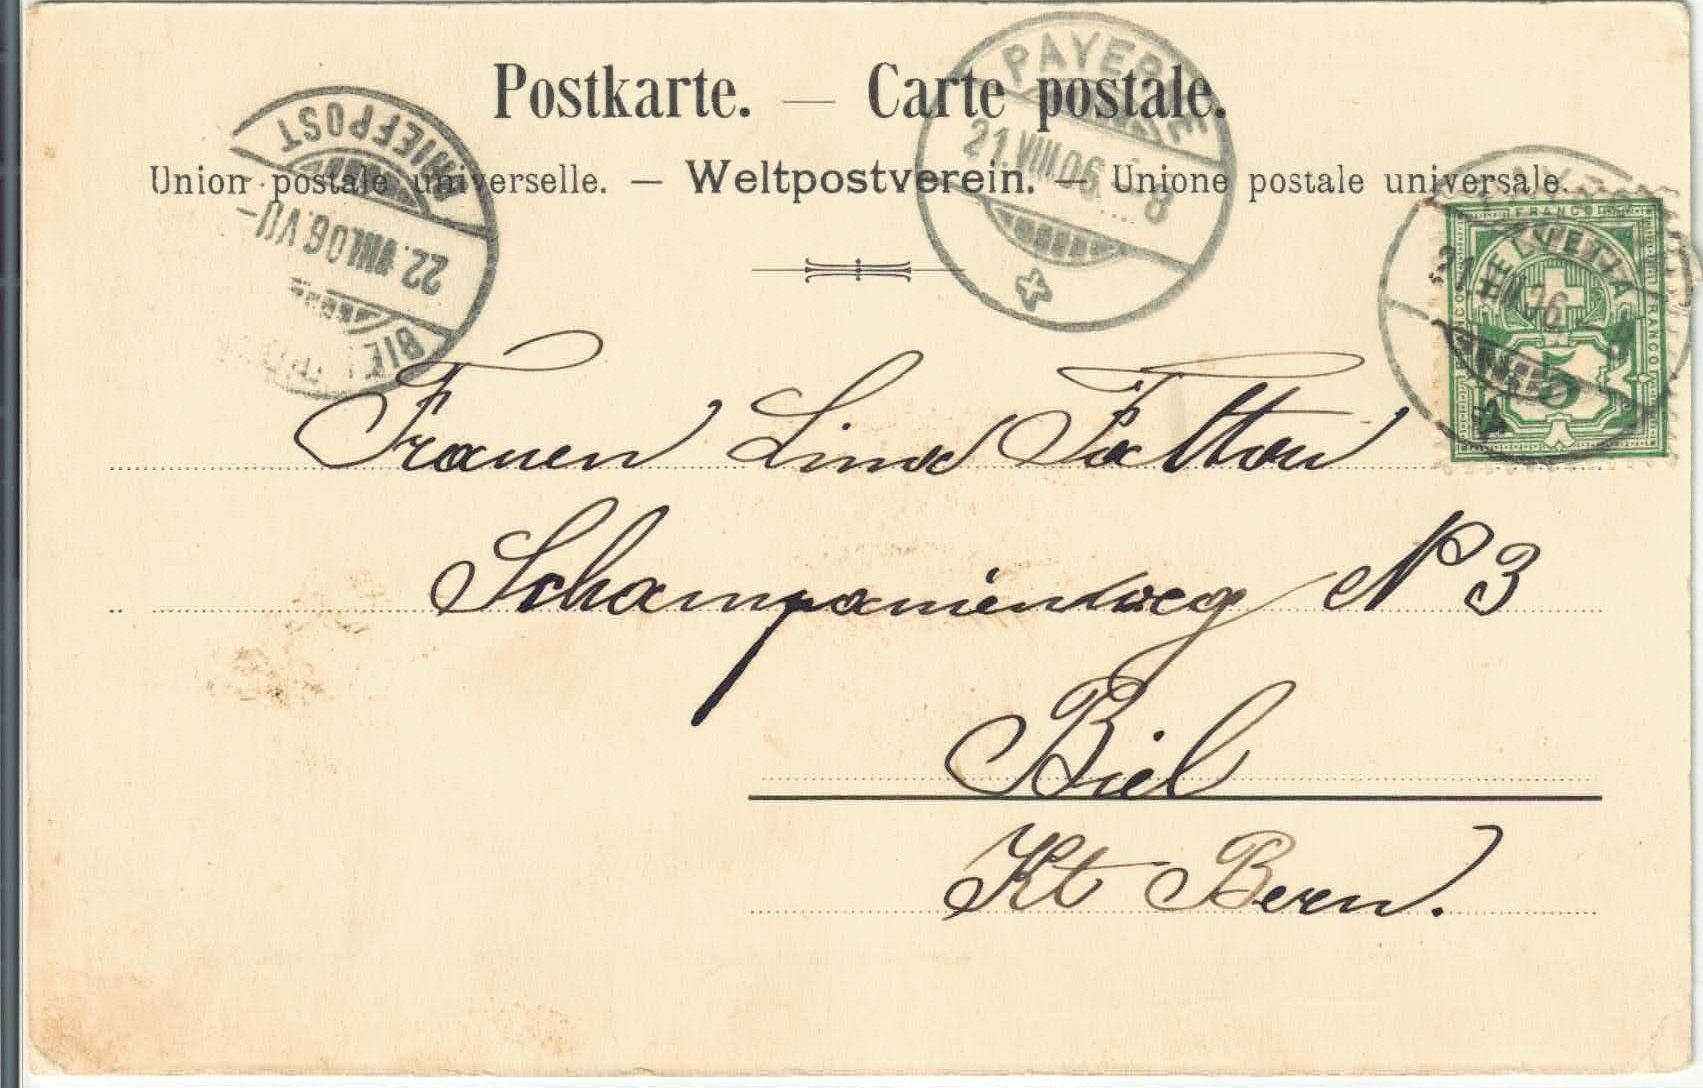 Postkarte. — Carte postale.
Union postale universelle. — Weltpostverein. — Unione postale universale.
PAYERNE
21.VIII.06. 8
BRIEFPOST
22.VIII.06.VII-
BIEL
FRANCO
HELVETIA
FRANCO
5
21.VIII.06
Frauen Lina
Schampanienweg N 3
Biel
Kt Bern.